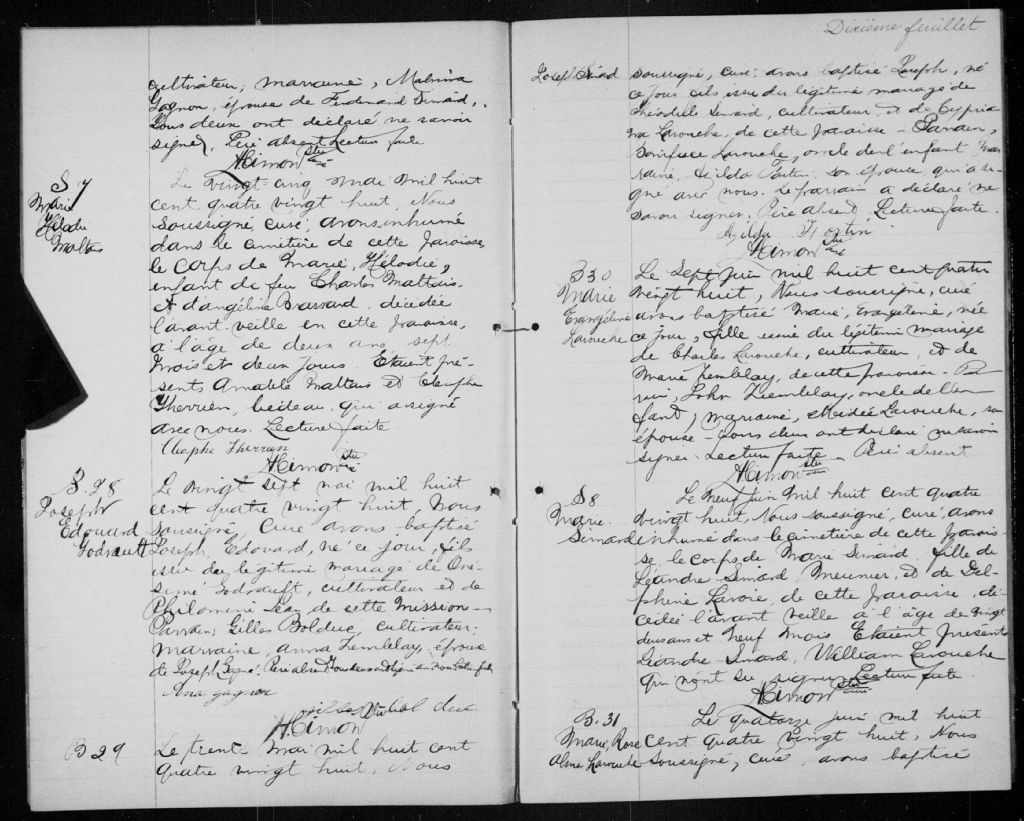 cultivateur, marraine, Malvina
Gagnon, épouse de Ferdinand Simard,
Tous deux ont déclaré ne savoir
signer. Père absent Lecture faite
HCimon ptre
curé
S 7
Marie
Hélodie
Maltais
Le vingt-cinq mai mil huit
cent quatre vingt huit, Nous
Soussigné, curé, avons inhumé
dans le cimetière de cette paroisse
le corps de Marie, Hélodie,
enfant de feu Charles Maltais
et d'angéline Brassard, décédée
l'avant veille en cette paroisse,
à l'âge de deux ans sept
mois et deux jours. Etaient pré-
sents Amable Maltais et Cléophe
Therrien, bedeau, qui a signé
avec nous. Lecture faite
Cleophe Therrien
HCimon ptre
curé
B. 28
Joseph
Edouard
Godrault
Le vingt sept mai mil huit
cent quatre vingt huit, Nous
Soussigné, Curé avons baptisé
Joseph, Edouard, né ce jour, fils
issu du légitime mariage de Oné-
sime Godrault, cultivateur et de
Philomène Jean de cette mission -
Parrain, Gilles Bolduc, cultivateur;
marraine, anna Tremblay, épouse
de Joseph Gagné. Père absent
Ana gagnon
HCimon
B 29
Le trente mai mil huit cent
quatre vingt huit, Nous
Dixième feuillet
Joseph Simard
soussigné, curé, avons baptisé Joseph, né
ce jour fils issu du légitime mariage de
Théodule Simard, cultivateur, et de Cypria
na Larouche, de cette paroisse - Parrain,
Boniface Larouche, oncle de l'enfant mar
raine, Exilda Fortin, son épouse, qui a si-
gné avec nous. Le parrain a déclaré ne
savoir signer. Père absent. Lecture faite.
Fortin
HCimon ptre
curé
B 30
Marie
Evangéline
Larouche
Le Sept juin mil huit cent quatre
vingt huit, Nous soussigné, curé
avons baptisé Marie, Evangéline, née
ce jour, fille issue du légitime mariage
de Charles Larouche, cultivateur, et de
Marie Tremblay, de cette paroisse - Par
rain, John Tremblay, oncle de l'en
fant; marraine, Médée Larouche, son
épouse - Tous deux ont déclaré ne savoir
signer. Lecture faite - Père absent
HCimon ptre
curé
S 8
Marie
Simard
Le Neuf juin mil huit cent quatre
vingt huit, Nous soussigné, curé, avons
inhumé dans le cimetière de cette parois-
se, le corps de Marie Simard, fille de
Léandre Simard, meunier, et de Del-
phine Lavoie de cette paroisse, dé-
cédée l'avant veille à l'âge de vingt
deux ans et neuf mois Etaient présents
Léandre Simard, William Larouche
Qui n'ont su signer. Lecture faite
HCimon ptre
curé
B. 31
Marie, Rose
Alma Larouche
Le quatorze juin mil huit
cent quatre vingt huit, Nous
soussigné, curé, avons baptisé